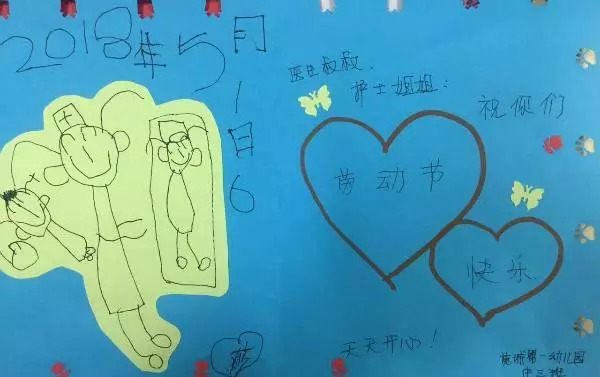 2018年5月1日6
医生叔叔、
护士姐姐：
祝你们
劳动节
快乐
天天开心！
第一幼儿园
中三班